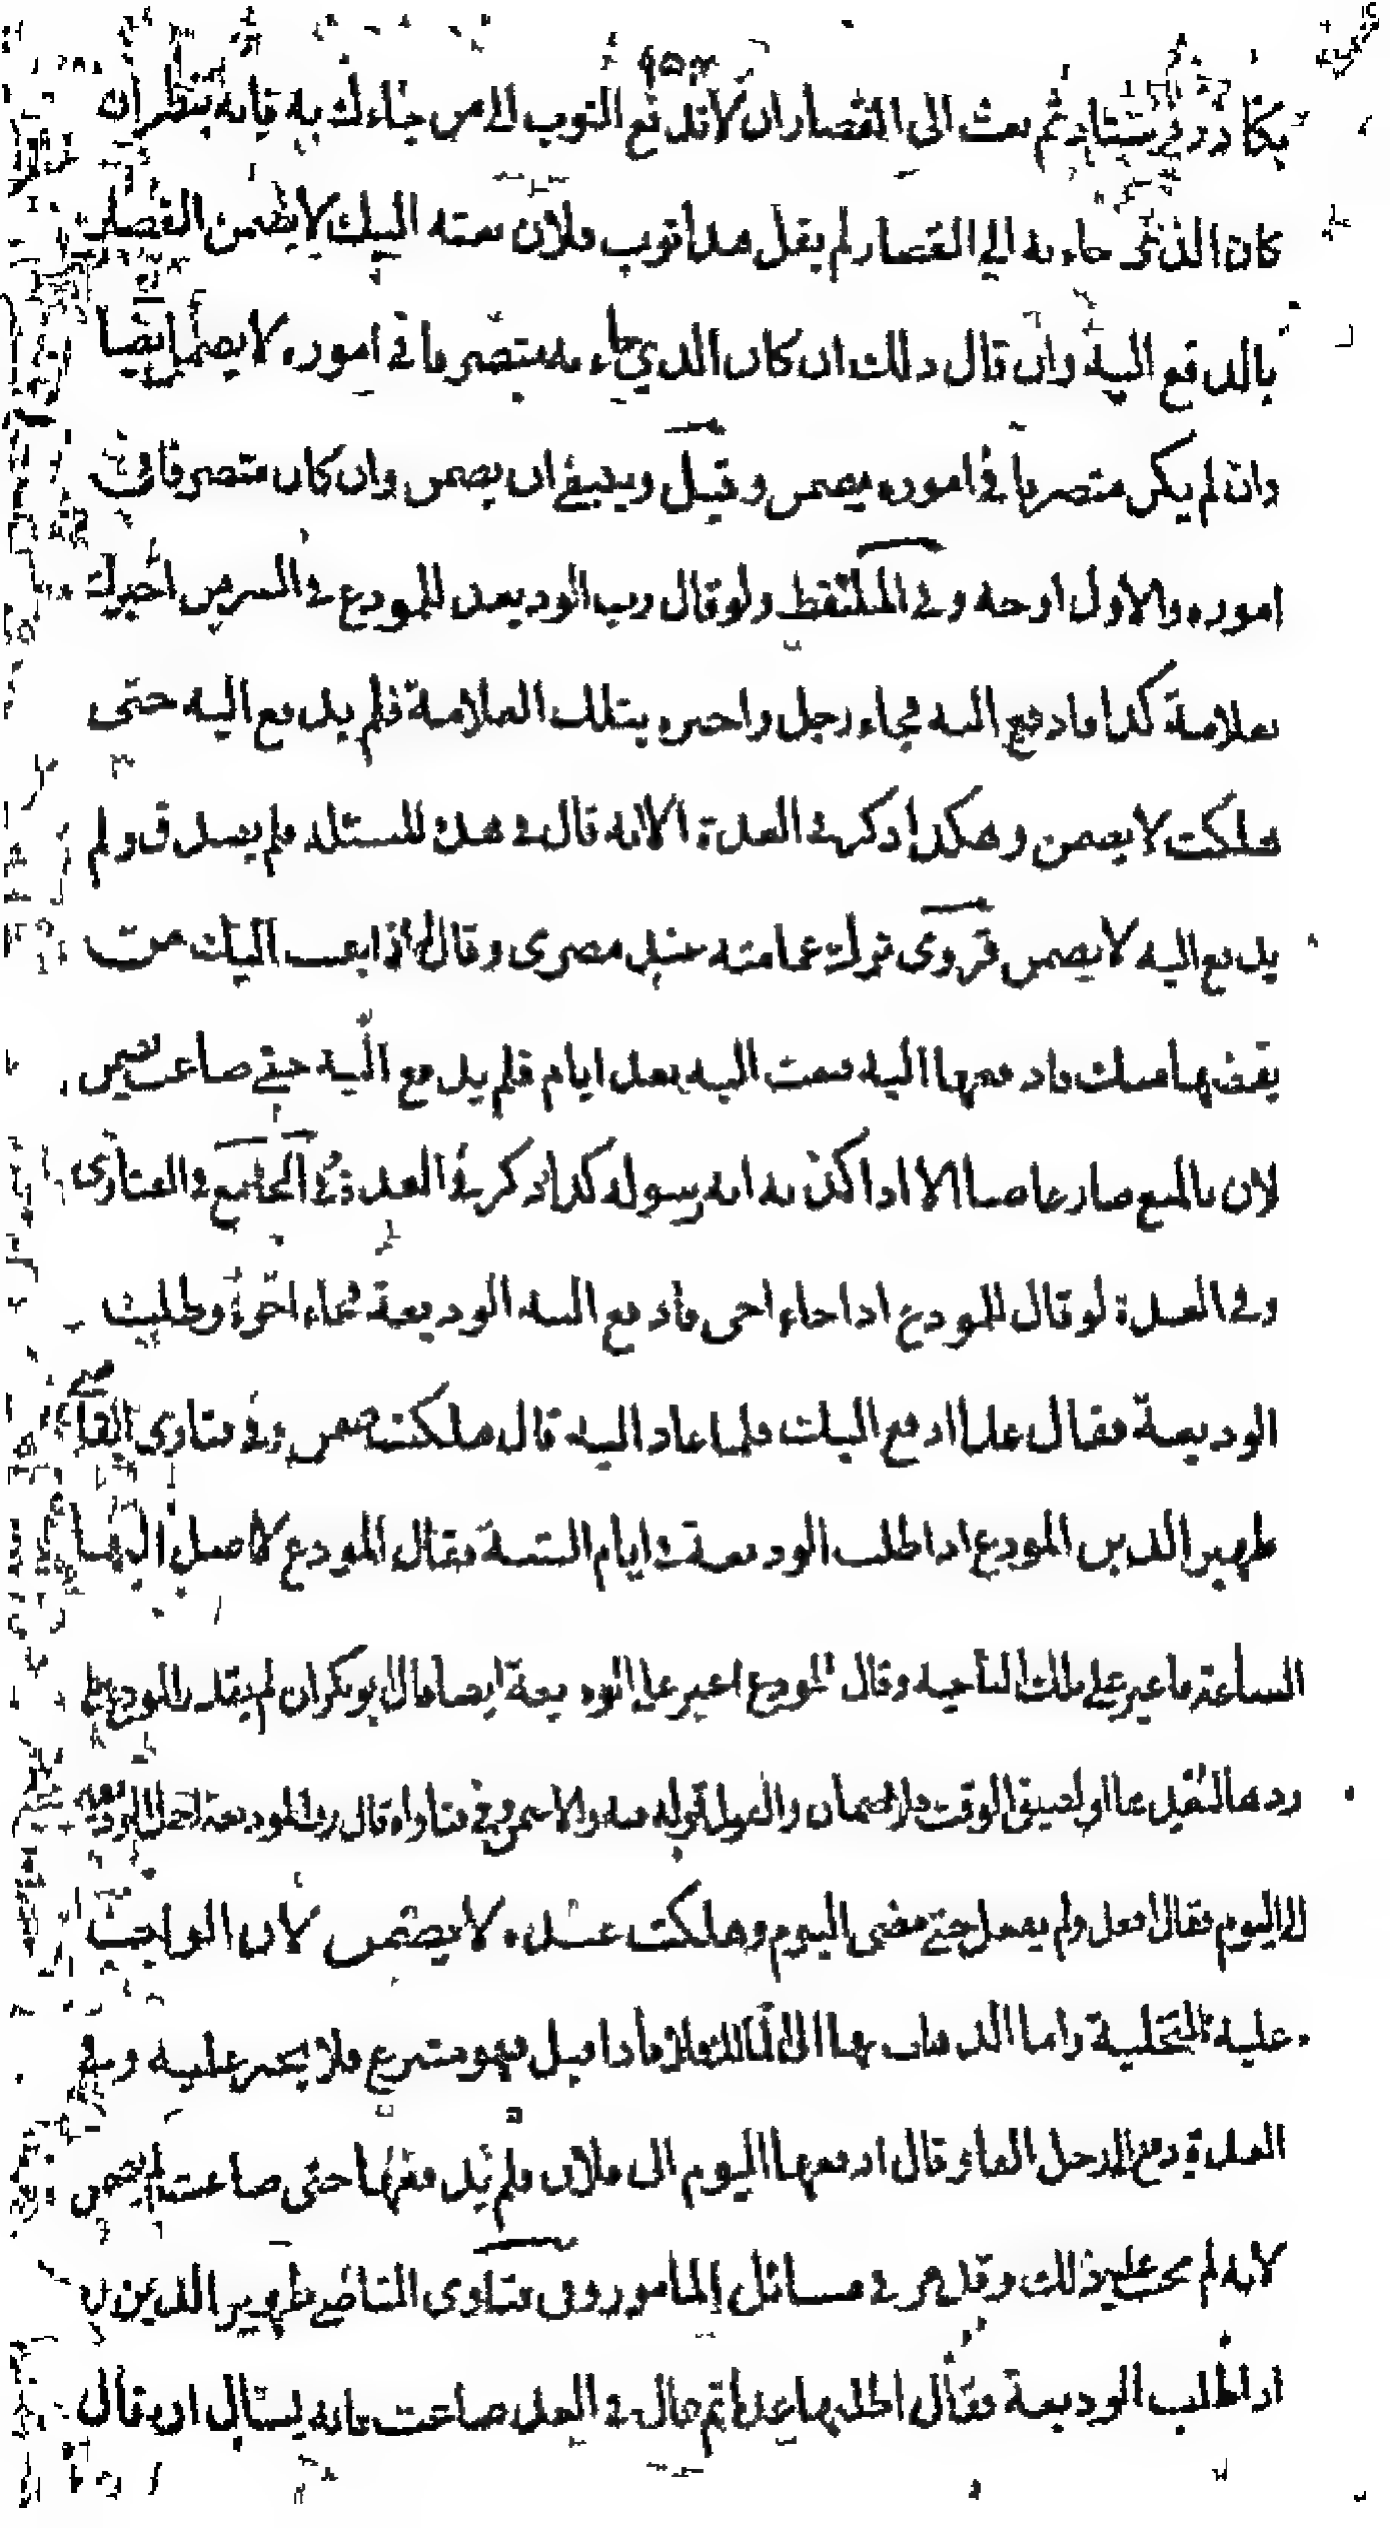 ٩٥٣
بكازرفرستاد ثم بعث الى القصار ان لا تدفع الثوب الى من جاءك به فانه ينظر ان
كان الذى جاء به الى القصار لم يقل هذا ثوب فلان بعثه اليك لا يضمن القصار
بالدفع اليه وان قال ذلك ان كان الذي جاء به متصرفا في اموره لا يضمن ايضا
وان لم يكن متصرفا في اموره يضمن وقيل وينبغي ان يضمن وان كان متصرفا في
اموره والاول اوجه وفي الملتقط ولو قال رب الوديعة للمودع في السر من اخبرك
بعلامة كذا فادفع اليه فجاء رجل واخبره بتلك العلامة فلم يدفع اليه حتى
هلكت لا يضمن وهكذا ذكر في العدة الا انه قال في هذه المسئلة فلم يصدق ولم
يدفع اليه لا يضمن قروى ترك عمامته عند مصرى وقال اذا بعث اليك من
يقبضها منك فادفعها اليه فبعث اليه بعد ايام فلم يدفع اليه حتى ضاعت يضمن
لان بالمنع صار غاصبا الا اذا كذبه انه رسوله كذا ذكر في العدة في الجامع في الفتاوى
وفي العدة لو قال للمودع اذا جاء اخى فادفع اليه الوديعة فجاء اخوه وطلب
الوديعة فقال غدا ادفع اليك فلما عاد اليه قال هلكت يضمن وفي فتاوى القاضي
ظهير الدين المودع اذا طلب الوديعة في ايام الفتنة فقال المودع لا اصل اليها
الساعة فاغير على تلك الناحية وقال المودع اغير على الوديعة ايضا قال ابو بكر ان لم يقدر المودع على
ردها لبعدها او لضيق الوقت فلا ضمان والقول قوله فيه والا ضمن وفي فتاواه قال رب الوديعة احمل الوديعة
الى اليوم فقال افعل ولم يفعل حتى مضى اليوم وهلكت عنده لا يضمن لان الواجب
عليه التخلية واما الذهاب بها الى المالك فلا فاذا قبل فهو متبرع فلا يجبر عليه وفي
العدة دفع الرجل الفا وقال ادفعها اليوم الى فلان فلم يدفعها حتى ضاعت لم يضمن
لانه لم يجب عليه ذلك وقد مر في مسائل المأمور وفى فتاوى القاضي ظهير الدين
اذا طلب الوديعة فقال اطلبها غدا ثم قال في الغد ضاعت فانه يسأل ان قال